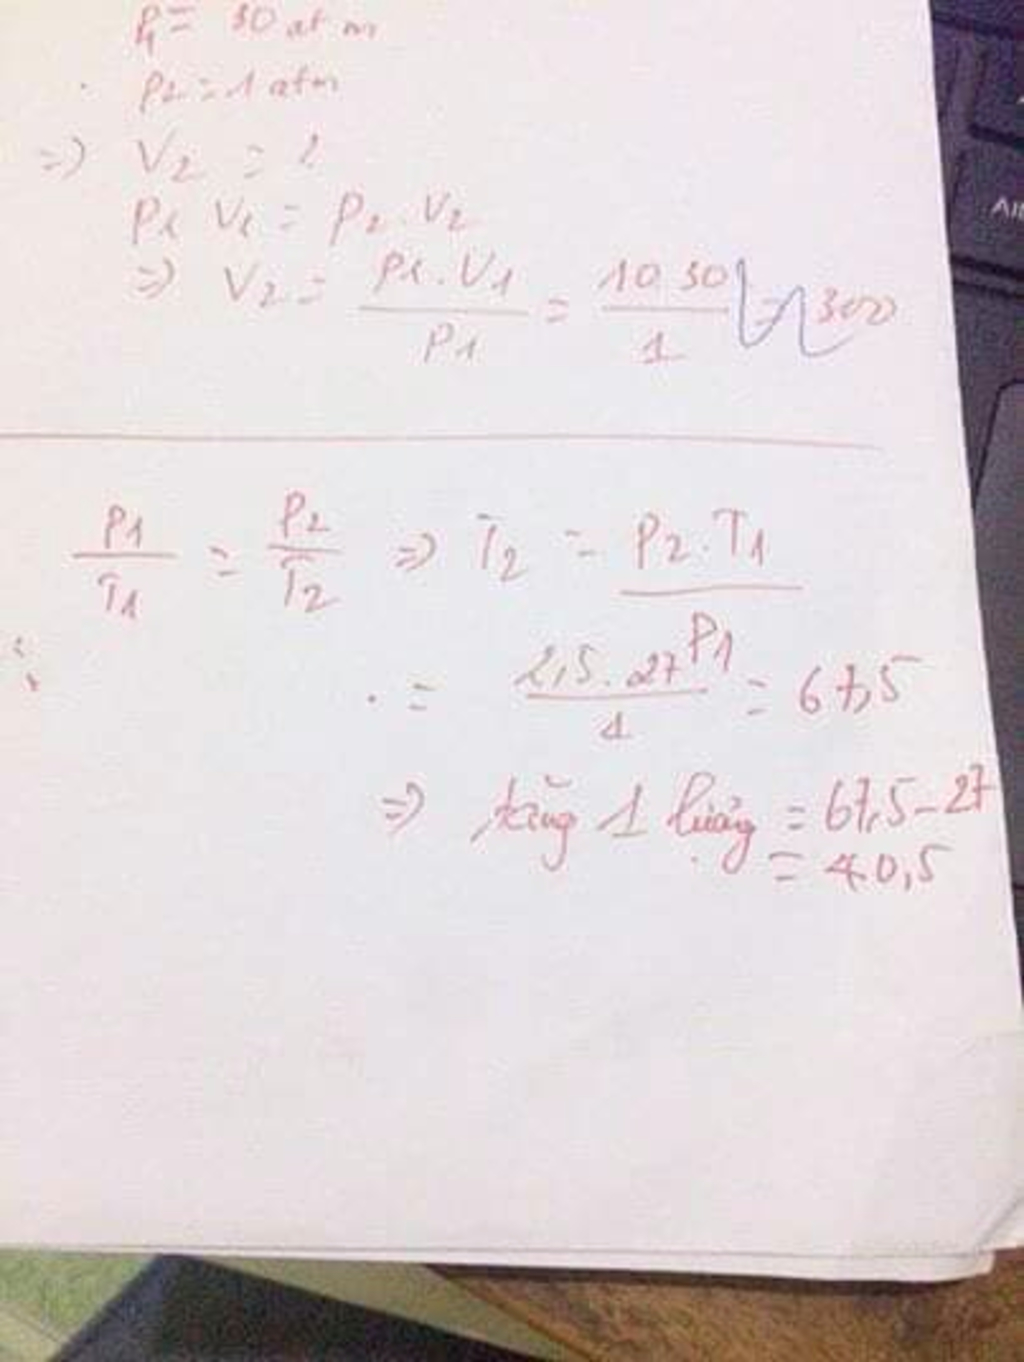 P1 = 30 atm
P2 = 1 atm
=> V2 = ?
P1 V1 = P2 . V2
=> V2 = P1 . V1 / P1 = 10 30 / 1 = 300
P1 / T1 = P2 / T2 => T2 = P2 . T1 / P1
= 2,5 . 27 / 1 = 67,5
=> tăng 1 lượng = 67,5 - 27
= 40,5